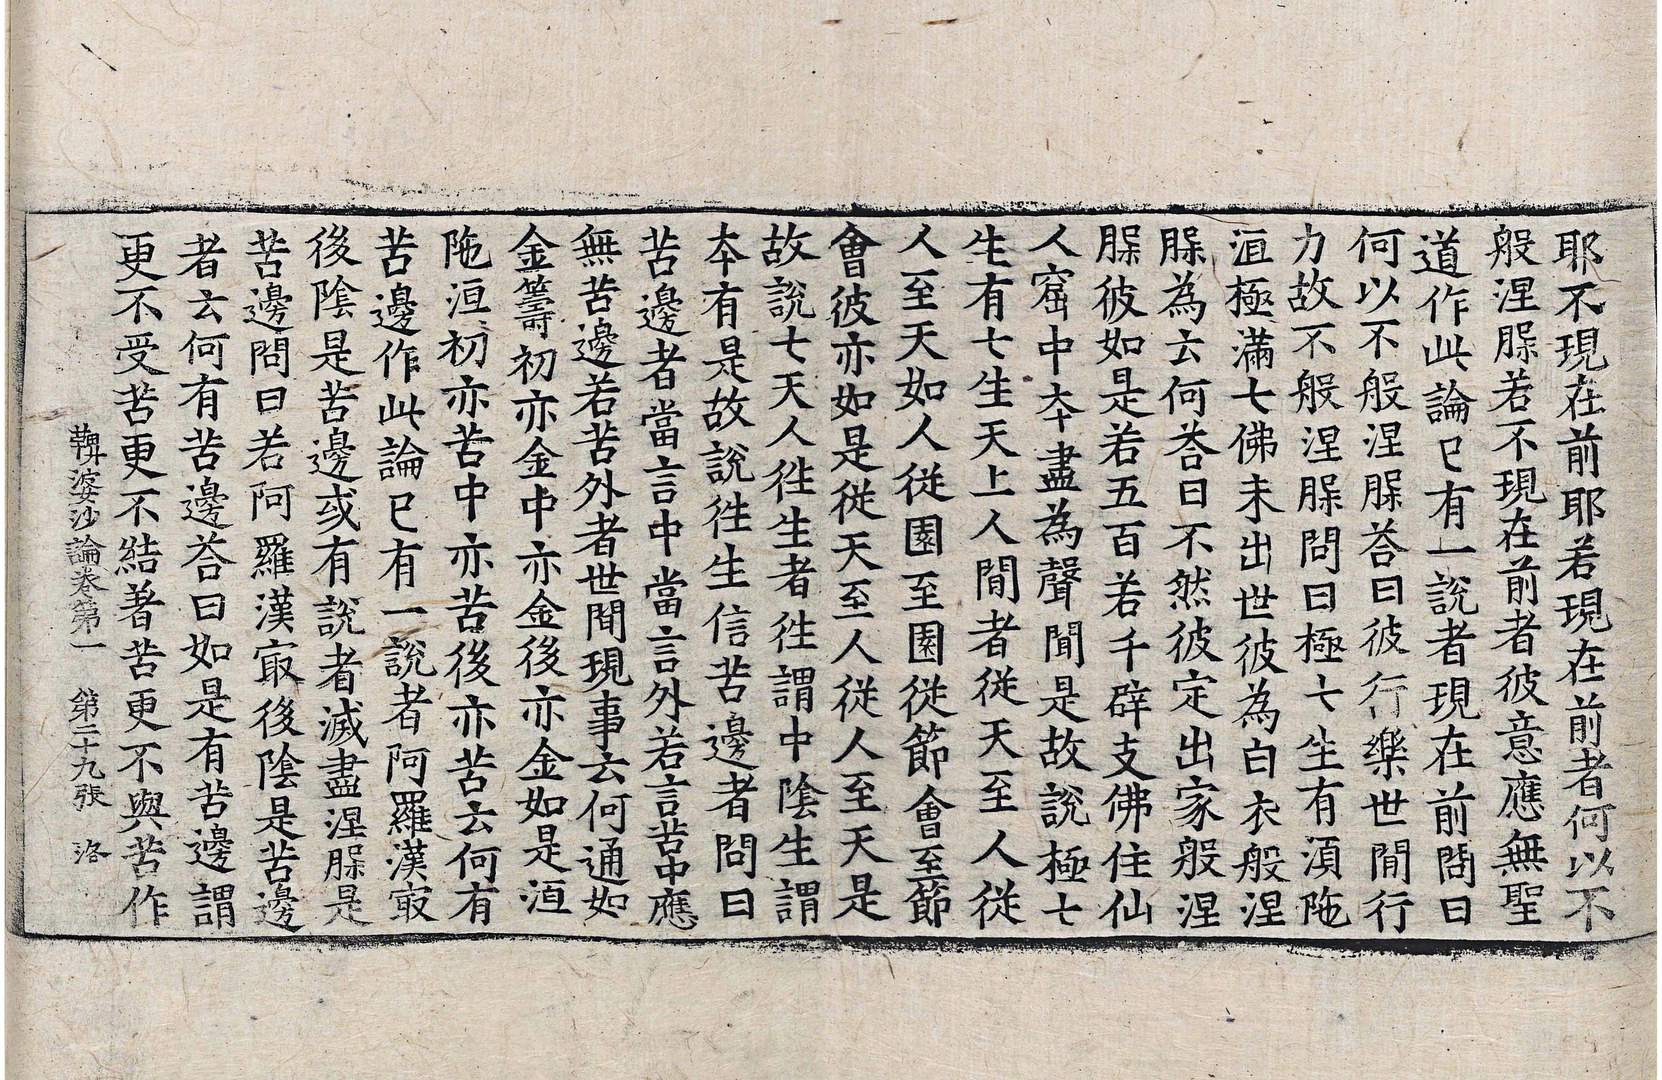 耶不現在前耶若現在前者何以不
般涅槃若不現在前者彼意應無聖
道作此論已有一說者現在前問曰
何以不般涅槃荅曰彼行樂世間行
力故不般涅槃問曰極七生有湏陁
洹極滿七佛未出世彼為白衣般涅
槃為云何荅曰不然彼定出家般涅
槃彼如是若五百若千辟支佛住仙
人窟中夲盡為聲聞是故說極七
生有七生天上人間者從天至人從
人至天如人從園至園從節會至節
會彼亦如是從天至人從人至天是
故說七天人徃生者徃謂中陰生謂
夲有是故說徃生信苦邊者問曰
苦邊者當言中當言外若言苦中應
無苦邊若苦外者世間現事云何通如
金籌初亦金中亦金後亦金如是湏
陁洹初亦苦中亦苦後亦苦云何有
苦邊作此論已有一說者阿羅漢㝡
後陰是苦邊或有說者滅盡涅槃是
苦邊問曰若阿羅漢㝡後陰是苦邊
者云何有苦邊荅曰如是有苦邊謂
更不受苦更不結著苦更不與苦作
鞞婆沙論卷第一 第二十九張 洛